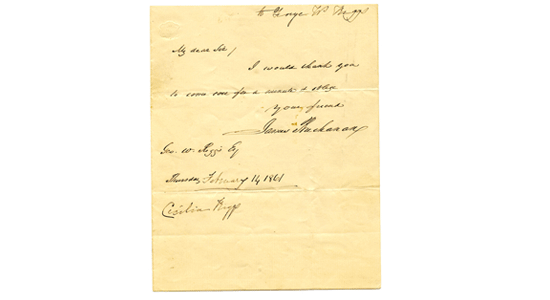 to George W Riggs
My dear Sir,
I would thank you
to come over for a minute & oblige
your friend
James Buchanan
Geo. W. Riggs Esq
Thursday February 14, 1861
Cecilia Riggs